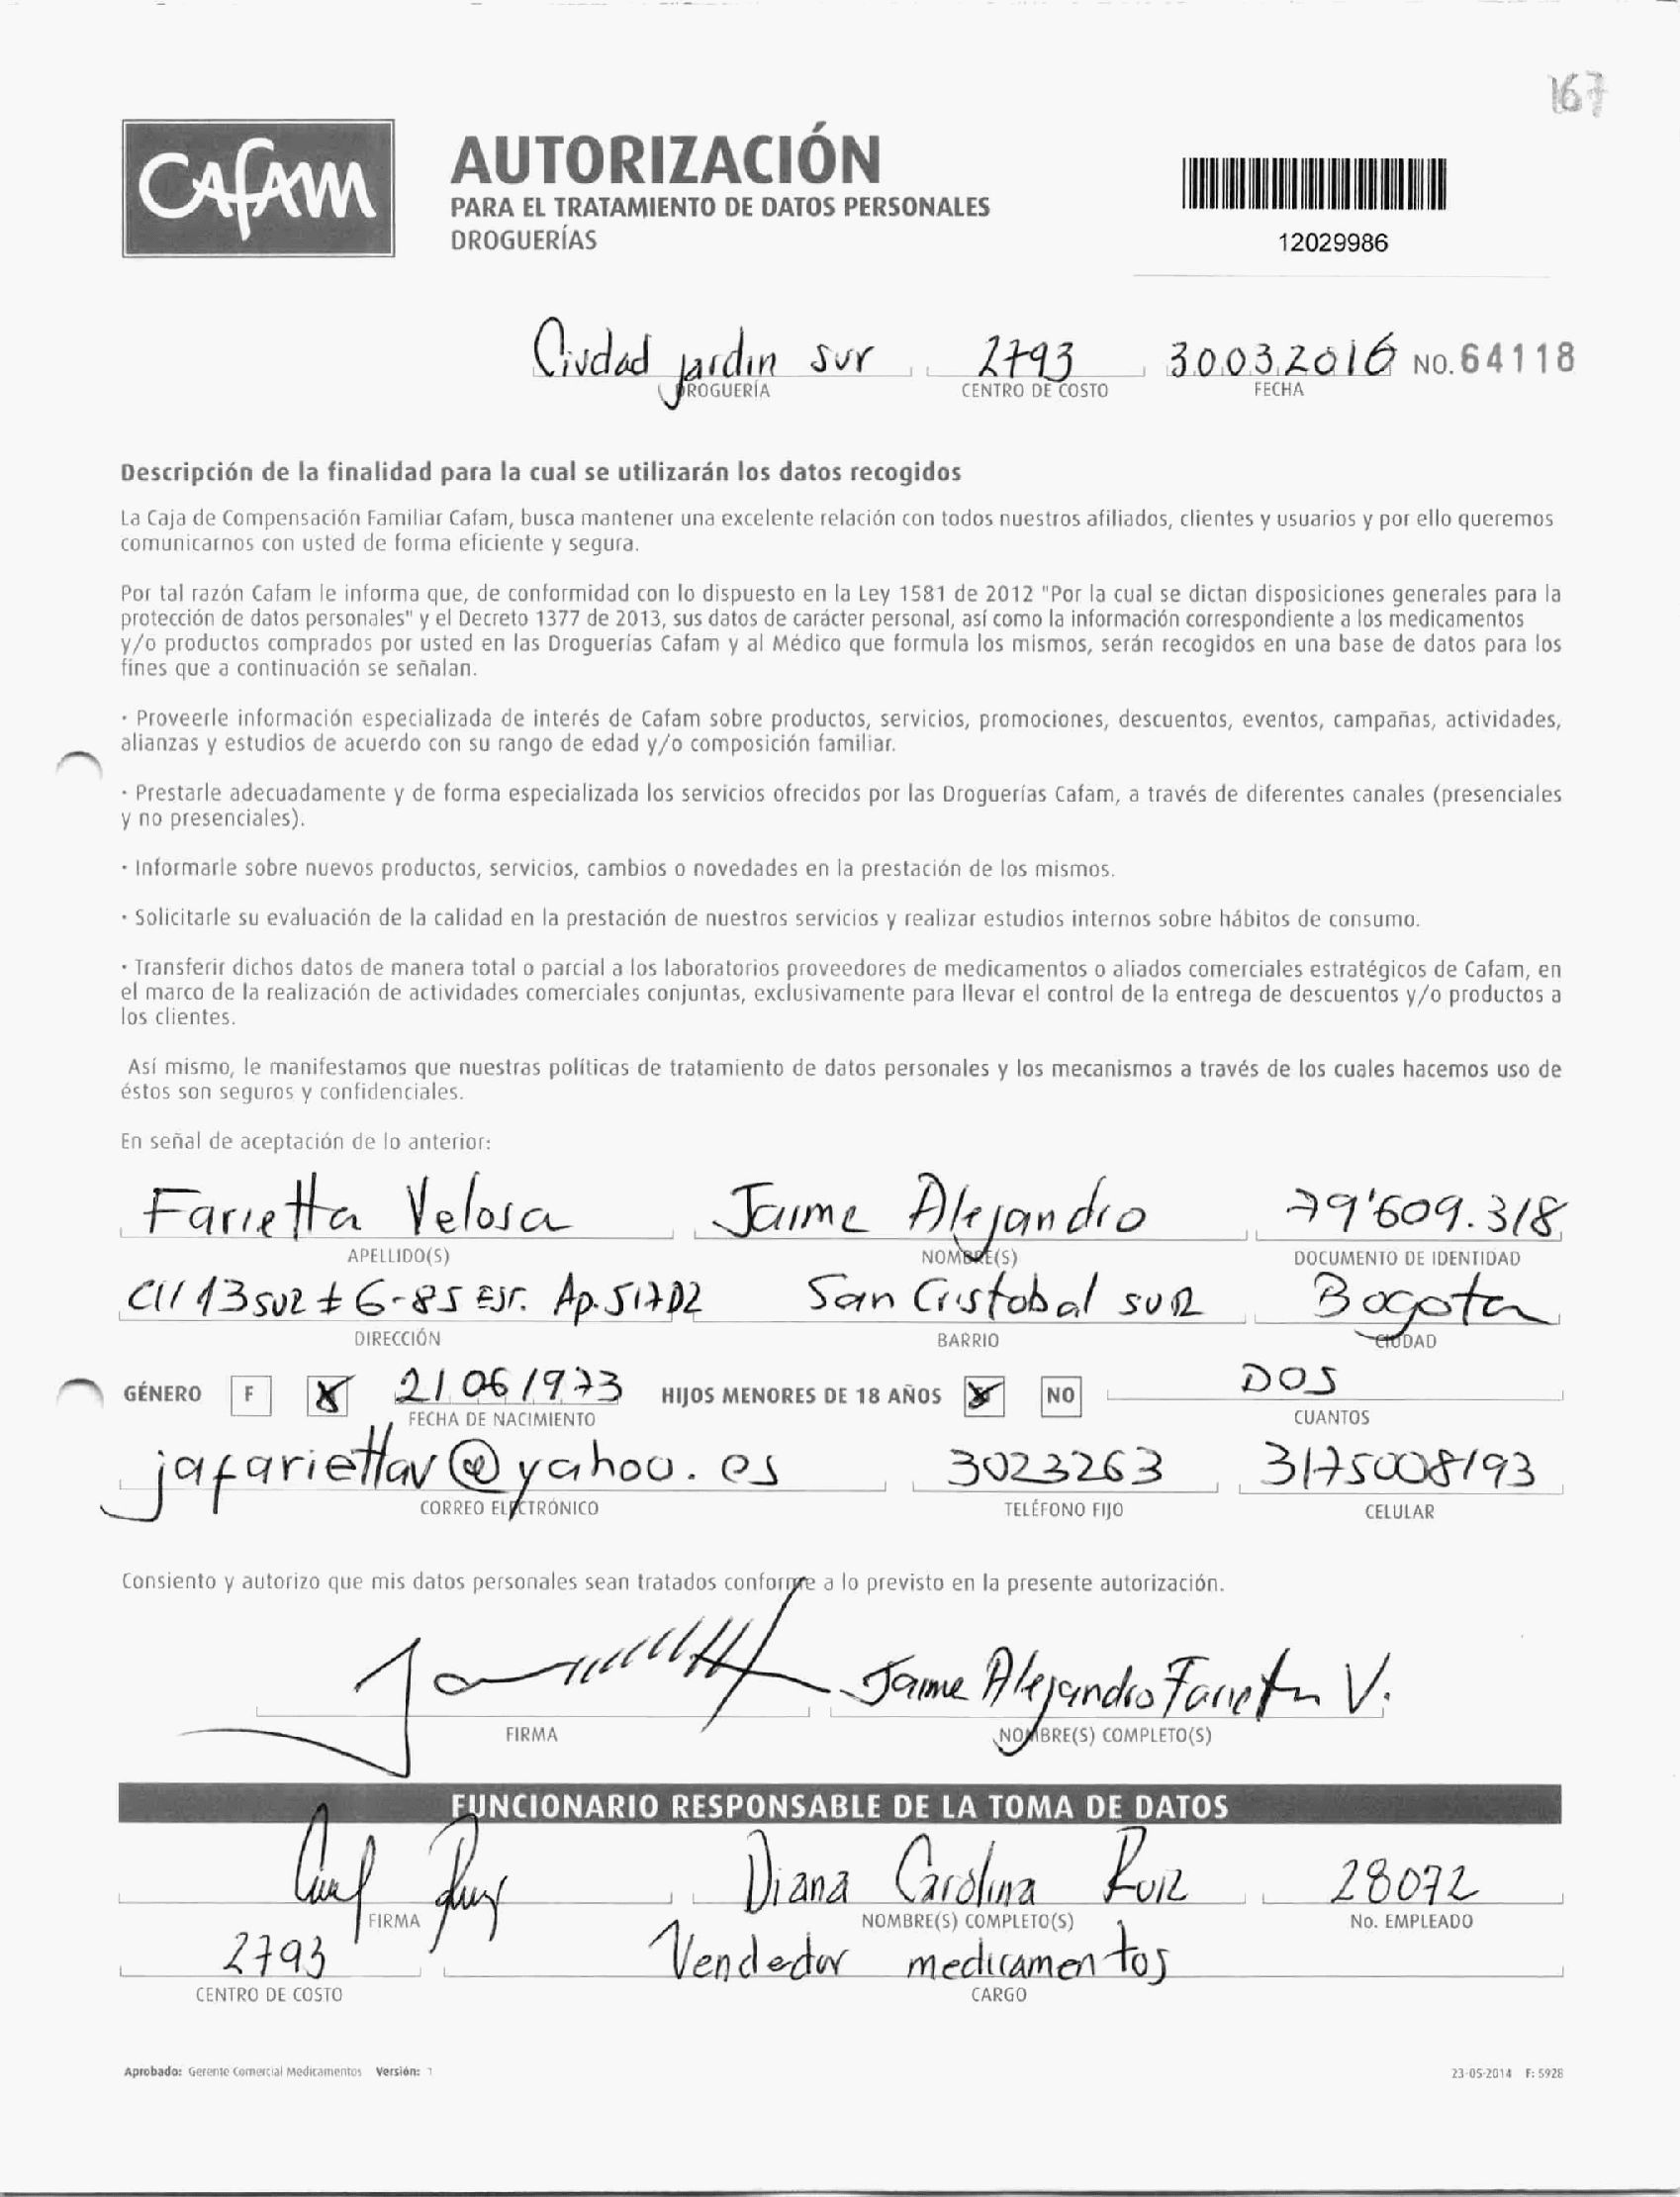 167
CAFAM
AUTORIZACIÓN
PARA EL TRATAMIENTO DE DATOS PERSONALES
DROGUERÍAS
12029986
Ciudad jardin sur 2793 30032016 NO. 64118
DROGUERÍA CENTRO DE COSTO FECHA
Descripción de la finalidad para la cual se utilizarán los datos recogidos
La Caja de Compensación Familiar Cafam, busca mantener una excelente relación con todos nuestros afiliados, clientes y usuarios y por ello queremos
comunicarnos con usted de forma eficiente y segura.
Por tal razón Cafam le informa que, de conformidad con lo dispuesto en la Ley 1581 de 2012 "Por la cual se dictan disposiciones generales para la
protección de datos personales" y el Decreto 1377 de 2013, sus datos de carácter personal, así como la información correspondiente a los medicamentos
y/o productos comprados por usted en las Droguerías Cafam y al Médico que formula los mismos, serán recogidos en una base de datos para los
fines que a continuación se señalan.
· Proveerle información especializada de interés de Cafam sobre productos, servicios, promociones, descuentos, eventos, campañas, actividades,
alianzas y estudios de acuerdo con su rango de edad y/o composición familiar.
· Prestarle adecuadamente y de forma especializada los servicios ofrecidos por las Droguerías Cafam, a través de diferentes canales (presenciales
y no presenciales).
· Informarle sobre nuevos productos, servicios, cambios o novedades en la prestación de los mismos.
· Solicitarle su evaluación de la calidad en la prestación de nuestros servicios y realizar estudios internos sobre hábitos de consumo.
· Transferir dichos datos de manera total o parcial a los laboratorios proveedores de medicamentos o aliados comerciales estratégicos de Cafam, en
el marco de la realización de actividades comerciales conjuntas, exclusivamente para llevar el control de la entrega de descuentos y/o productos a
los clientes.
Así mismo, le manifestamos que nuestras políticas de tratamiento de datos personales y los mecanismos a través de los cuales hacemos uso de
éstos son seguros y confidenciales.
En señal de aceptación de lo anterior:
Farietta Velosa Jaime Alejandro 79'609.318
APELLIDO(S) NOMBRE(S) DOCUMENTO DE IDENTIDAD
Cll 13 SUR # 6-85 ESt. Ap. San Cristobal SUR Bogota
DIRECCIÓN BARRIO CIUDAD
GÉNERO F X 21061973 HIJOS MENORES DE 18 AÑOS X NO DOS
FECHA DE NACIMIENTO CUANTOS
jafariettav@yahoo.es 3023263 3175008193
CORREO ELECTRÓNICO TELÉFONO FIJO CELULAR
Consiento y autorizo que mis datos personales sean tratados conforme a lo previsto en la presente autorización.
Jaime Alejandro Farietta V.
FIRMA NOMBRE(S) COMPLETO(S)
FUNCIONARIO RESPONSABLE DE LA TOMA DE DATOS
Diana Carolina Ruiz 28072
FIRMA NOMBRE(S) COMPLETO(S) No. EMPLEADO
2793 Vendedor medicamentos
CENTRO DE COSTO CARGO
Aprobado: Gerente Comercial Medicamentos Versión: 1 23-05-2014 F: 5928